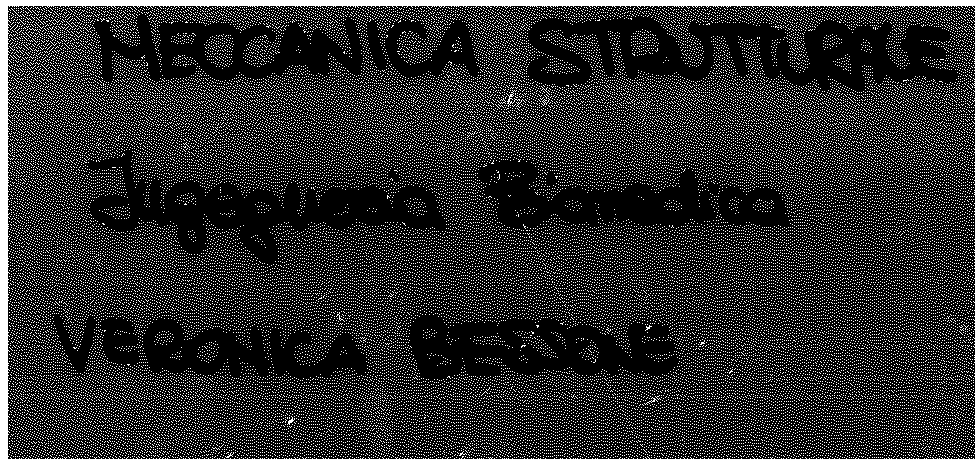 MECCANICA STRUTTURALE
Ingegneria Biomedica
VERONICA BESSONE